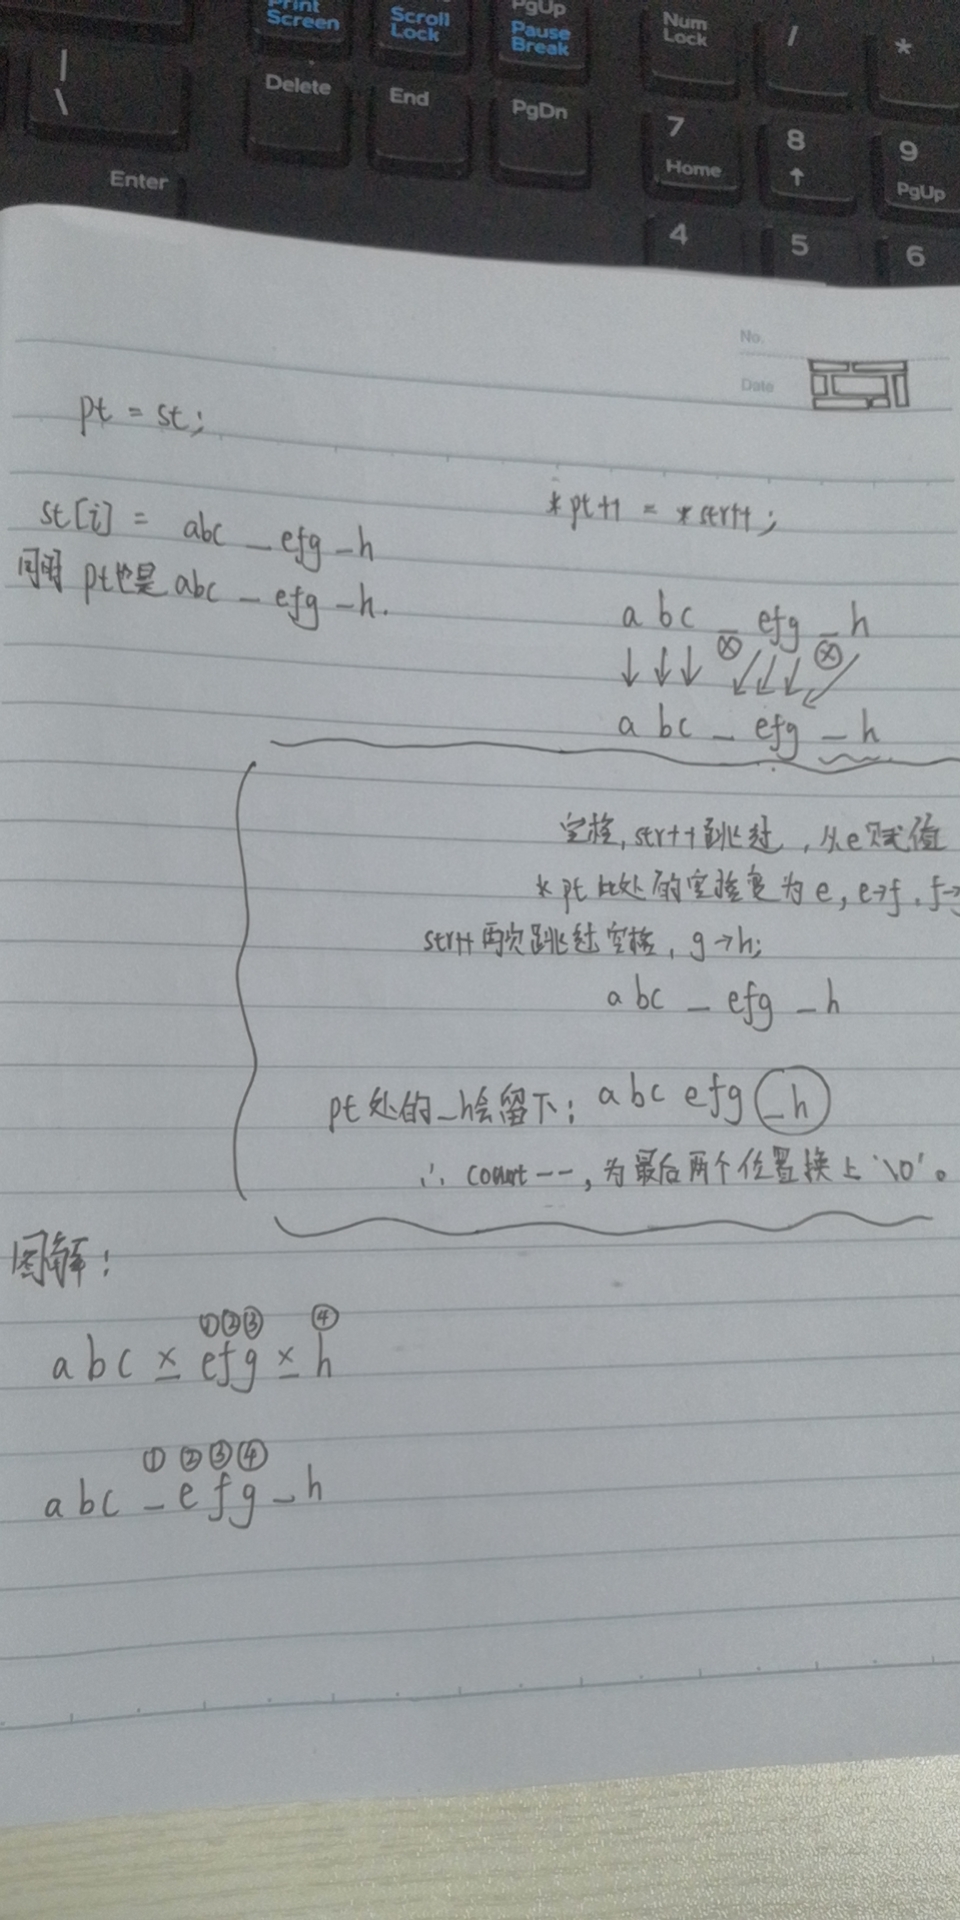 Print Screen
Scroll Lock
PgUp
Pause Break
Num Lock
/
*
|
\
Delete
End
PgDn
7
Home
8
↑
9
PgUp
Enter
4
5
6
No.
Date
pt = st;
st[i] = abc _ efg _h
同时 pt也是 abc _ efg _h.
*pt++ = *str++;
a b c _ efg _ h
a b c _ efg _ h
空格, str++跳过, 从e赋值
*pt 此处的空格变为e, e→f, f→
str++再次跳过空格, g→h;
a bc _ efg _h
pt 处的_h会留下: a b c e f g _h
∴ count--, 为最后两个位置换上'\0'。
图解:
① ② ③ ④
a b c × e f g × h
① ② ③ ④
a b c _ e f g _ h